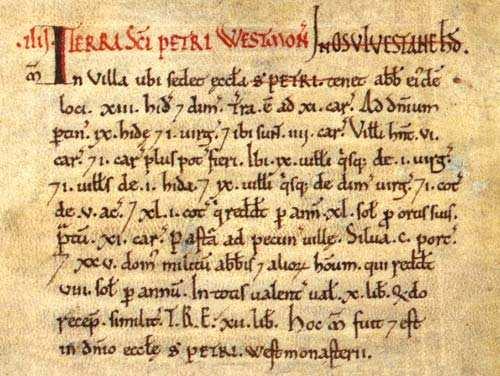 .iiij. TERRA SCI PETRI WESTMON̄. IN OSVLVESTANE HD̄.
m̄ In Villa ubi sedet æccła S PETRI. tenet abb̄ ei⁹dē
loci. XIII. hid̄ ⁊ dim̄. Tr̄a. ē ad XI. car̄. Ad dn̄ium
ptin̄. IX. hidę ⁊ I. uirg̃. ⁊ ibi sun̄. IIII. car̄. Villi hn̄t. VI.
car̄. ⁊ I. car̄ plus pot̄ fieri. Ibi. IX. uilłi q̄sq; de. I. uirg̃.
⁊ I. uilłs de. I. hida. ⁊ IX. uilłi q̄sq; de dim̄ uirg̃. ⁊ I. cot̄
de. V. ac̄. ⁊ XL. I. cot̄ q̄ reddt̄ p ann̄. XL. sol̄ p ortis suis.
P̄tū. XI. car̄. Pasta ad pecun̄ uillę. Silua. C. porc̄.
⁊ XXV. dom⁹ militū abb̄is ⁊ alioȝ houm̄. qui reddt̄
VIII. sol̄ p annū. In totis ualent̄ ual̄. X. lib̄. Q̄do
recep̄. similit̄. T. R. E. XII. lib̄. Hoc m̄ fuit ⁊ est
in dn̄io æccłę S PETRI. Westmonasterii.